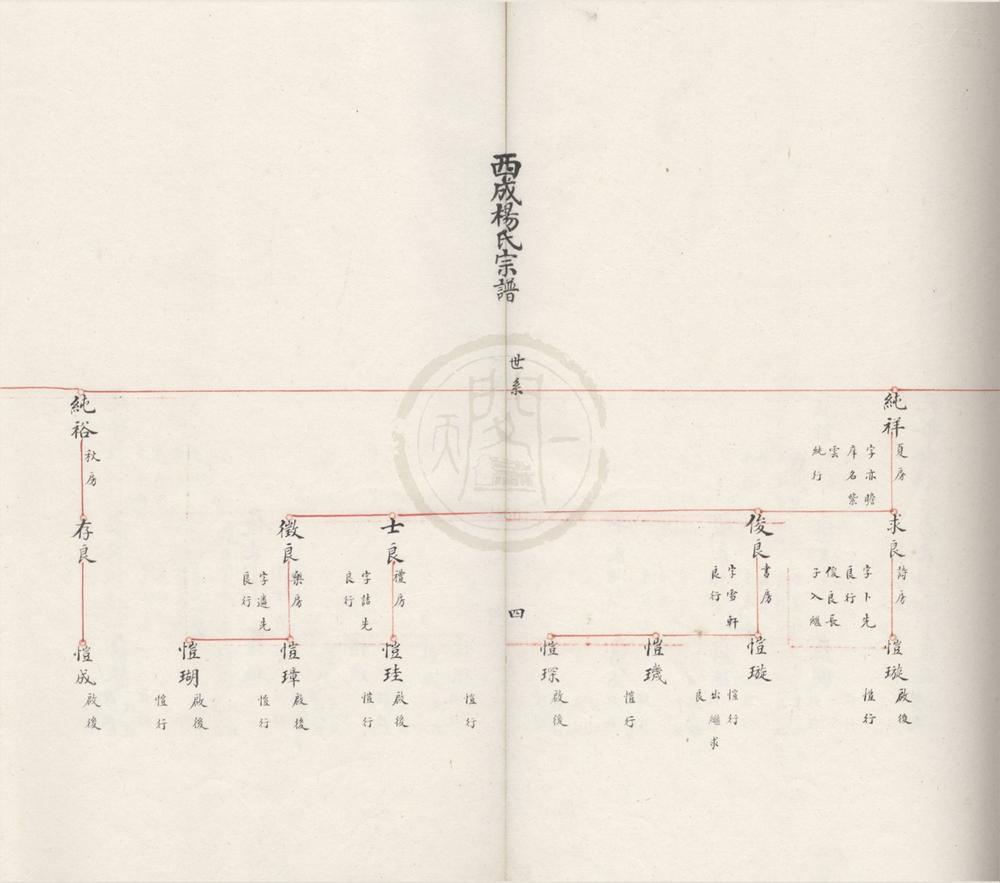 西成楊氏宗譜
世系
四
純祥
夏房
字亦瞻
庠名紫
雲
純行
求良
詩房
字卜先
良行
俊良長
子入繼
愷璇
啟後
愷行
俊良
書房
字雪軒
良行
愷璇
愷行
出繼求
良
愷璣
愷行
愷琛
啟後
愷行
士良
禮房
字詰先
良行
愷珪
啟後
愷行
徵良
樂房
字遴先
良行
愷璋
啟後
愷行
愷瑚
啟後
愷行
純裕
秋房
存良
愷成
啟後